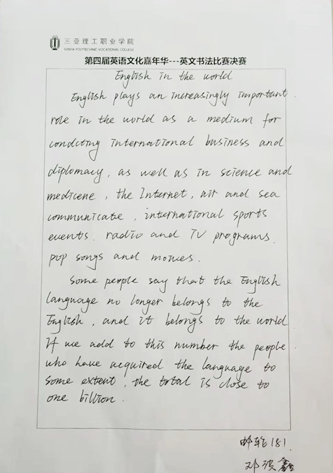 三亚理工职业学院
SANYA POLYTECHNIC VOCATIONAL COLLEGE
第四届英语文化嘉年华---英文书法比赛决赛
English in the world
English plays an increasingly important
role in the world as a medium for
condcting international business and
diplomacy, as well as in science and
medicene, the Internet, air and sea
communicate, international sports
events. radio and TV programs.
pop songs and movies.
Some people say that the English
language no longer belongs to the
English, and it belongs to the world
if we add to this number the people
who have acquired the language to
some extent, the total is close to
one billion.
邮轮181
邓